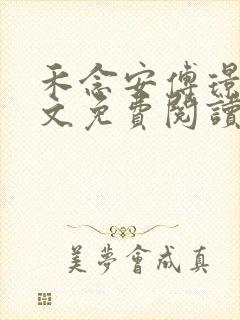 禾念安傅璟
文免費閱讀
美夢會成真